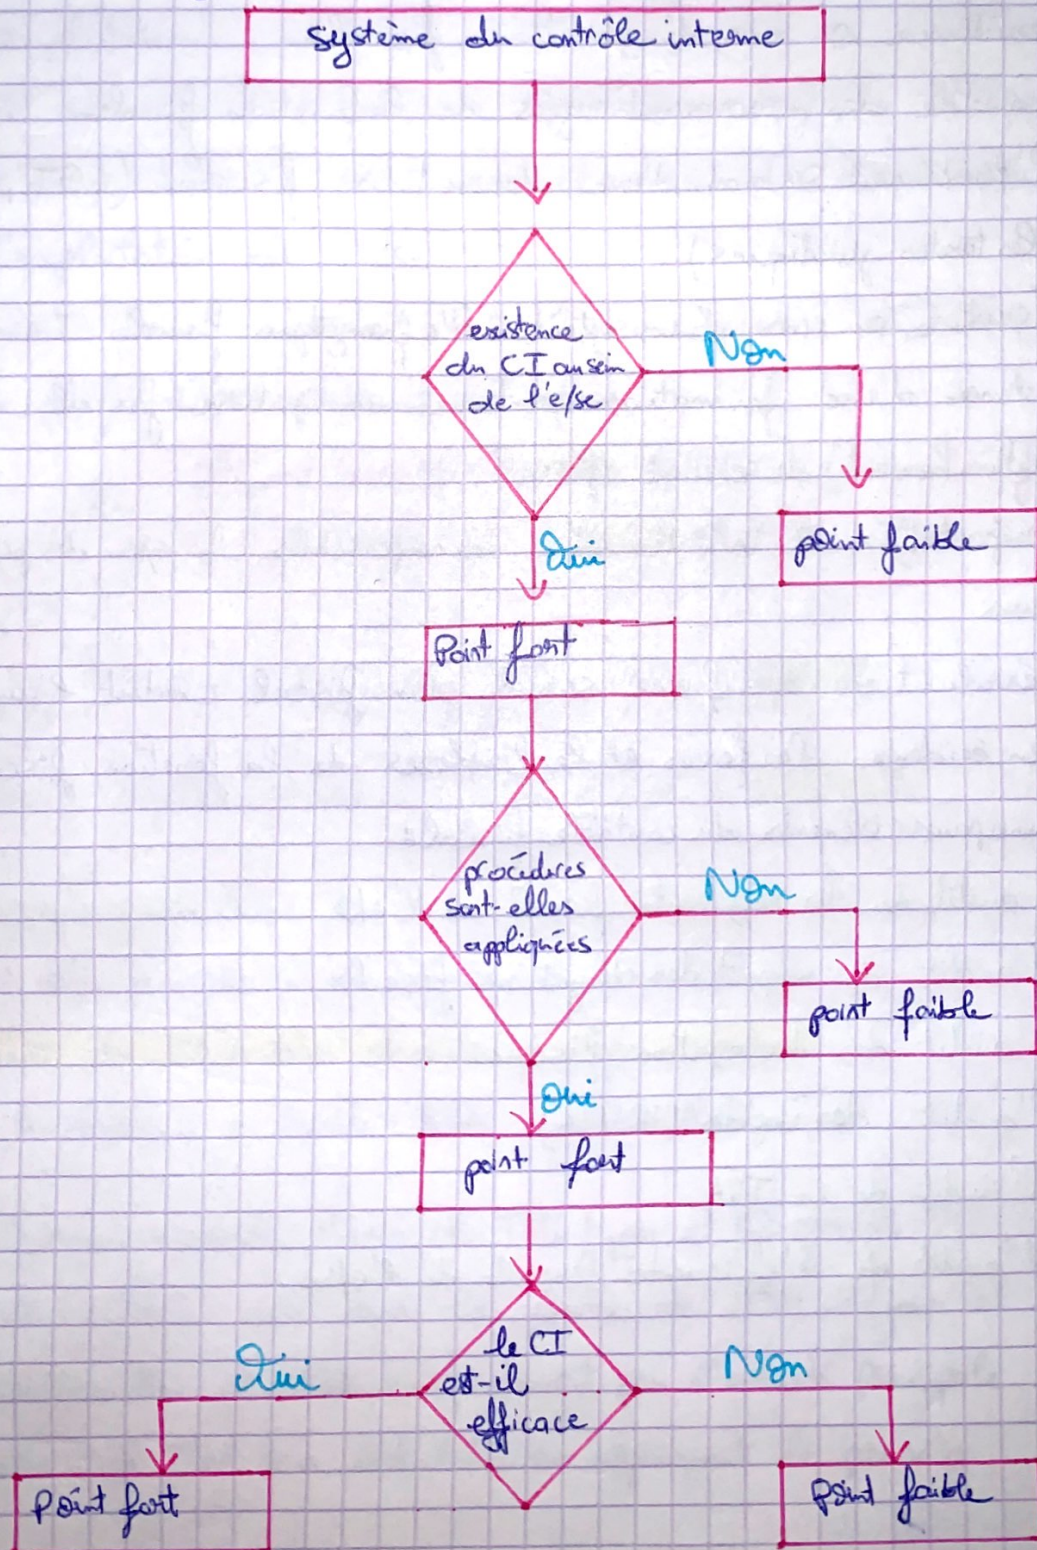 système du contrôle interne
existence
du CI au sein
de l'e/se
Non
point faible
Oui
Point fort
procédures
sont-elles
appliquées
Non
point faible
Oui
point fort
le CI
est-il
efficace
Oui
Non
Point fort
Point faible